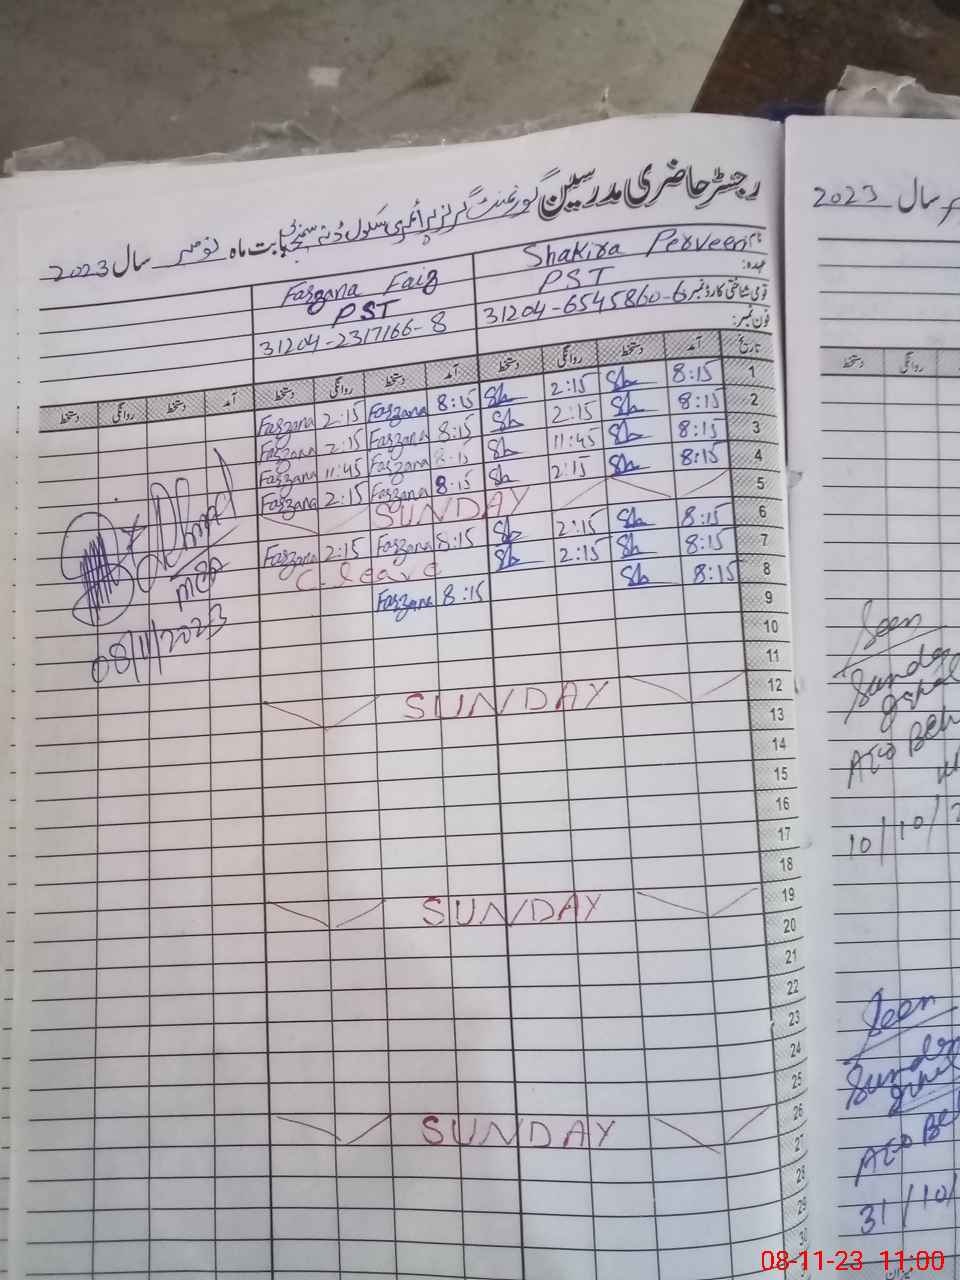 رجسٹر حاضری مدرسین گورنمنٹ گرلز پرائمری سکول بابت ماہ نومبر سال 2023
نام Shakira Perveen Farzana Faiz
عہدہ: PST PST
قومی شناختی کارڈ نمبر 31204-6545860-6 31204-2317166-8
فون نمبر:
تاریخ آمد دستخط روانگی دستخط آمد دستخط روانگی دستخط آمد دستخط روانگی دستخط
1 8:15 Sh 2:15 Sh 8:15 Farzana 2:15 Farzana
2 8:15 Sh 2:15 Sh 8:15 Farzana 2:15 Farzana
3 8:15 Sh 11:45 Sh 8:15 Farzana 11:45 Farzana
4 8:15 Sh 2:15 Sh 8:15 Farzana 2:15 Farzana
5 SUNDAY
6 8:15 Sh 2:15 Sh 8:15 Farzana 2:15 Farzana
7 8:15 Sh 2:15 Sh C-leave
8 8:15 Sh 8:15 Farzana
9
10
11
12 SUNDAY
13
14
15
16
17
18
19 SUNDAY
20
21
22
23
24
25
26 SUNDAY
27
28
29
30
MEA
08/11/2023
سال 2023
روانگی دستخط
Seen
10/10/2
Seen
31/10/
08-11-23 11:00